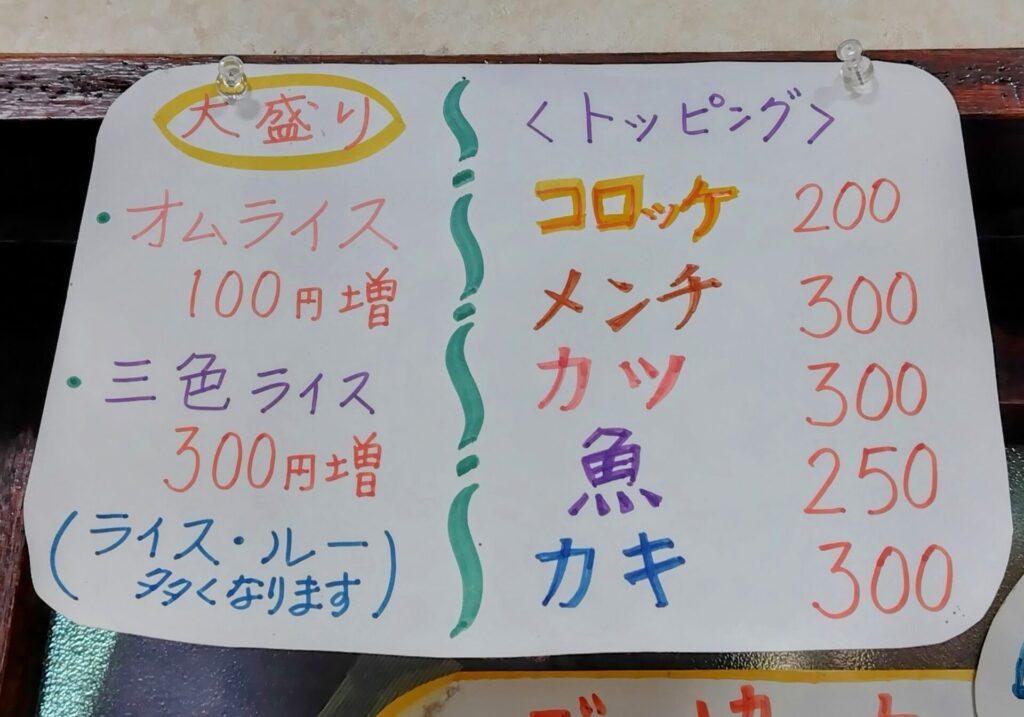 大盛り
・オムライス
100円増
・三色ライス
300円増
(ライス・ルー
多くなります)
<トッピング>
コロッケ 200
メンチ 300
カツ 300
魚 250
カキ 300